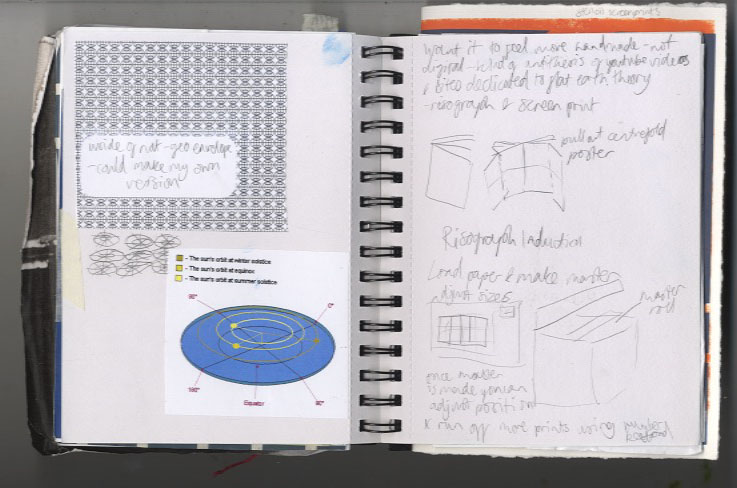 inside of nat-geo envelope
-could make my own
version
- The sun's orbit at winter solstice
- The sun's orbit at equinox
- The sun's orbit at summer solstice
90°
0°
180°
90°
Equator
screenprints
Want it to feel more handmade - not
digital - kind of antithesis of youtube videos
& sites dedicated to flat earth theory
- risograph & screen print
pull out centrefold
poster
Risograph Induction
Load paper & make master
adjust sizes
master
roll
once master
is made you can
adjust position
& run off more prints using number